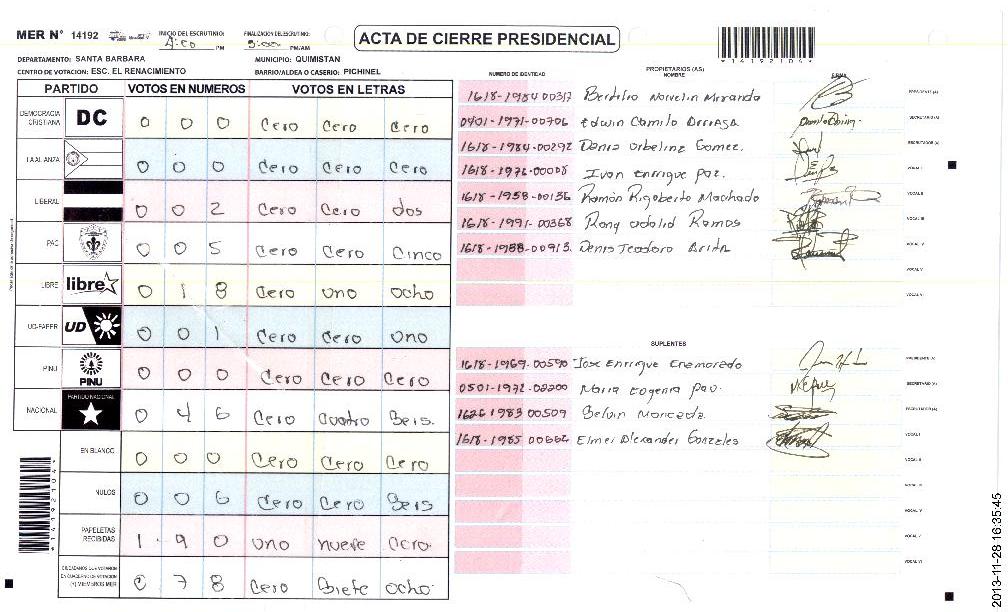 MER N° 14192 INICIO DEL ESCRUTINIO: 4:00 PM FINALIZACION DEL ESCRUTINIO: 5:00 PM/AM
ACTA DE CIERRE PRESIDENCIAL
*14192104*
DEPARTAMENTO: SANTA BARBARA MUNICIPIO: QUIMISTAN
CENTRO DE VOTACION: ESC. EL RENACIMIENTO BARRIO/ALDEA O CASERIO: PICHINEL
PARTIDO VOTOS EN NUMEROS VOTOS EN LETRAS
DEMOCRACIA CRISTIANA DC 0 0 0 Cero Cero Cero
LA ALIANZA 0 0 0 Cero Cero Cero
LIBERAL 0 0 2 Cero Cero dos
PAC 0 0 5 Cero Cero Cinco
LIBRE libre 0 1 8 Cero uno ocho
UD-FAPER UD 0 0 1 Cero Cero uno
PINU PINU 0 0 0 Cero Cero Cero
NACIONAL PARTIDO NACIONAL 0 4 6 Cero Cuatro Seis.
EN BLANCO 0 0 0 Cero Cero Cero
NULOS 0 0 6 Cero Cero Seis
PAPELETAS RECIBIDAS 1 9 0 uno nueve Cero.
CIUDADANOS QUE VOTARON EN CUADERNO DE VOTACION (Y) MIEMBROS MER 0 7 8 Cero Siete ocho
*14192104*
NUMERO DE IDENTIDAD PROPIETARIOS (AS) NOMBRE FIRMA
1618-1984-00317 Bertilio Norvelin Miranda PRESIDENTE (A)
0401-1971-00706 Edwin Camilo Arriaga SECRETARIO (A)
1618-1984-00292 Denia Urbelina Gomez. ESCRUTADOR (A)
1618-1976-00008 Ivan Enrique Paz. VOCAL I
1618-1958-00136 Ramón Rigoberto Machado VOCAL II
1618-1991-00368 Rony Udalid Ramos VOCAL III
1618-1988-00913. Denis Teodoro Arita VOCAL IV
VOCAL V
VOCAL VI
SUPLENTES
1618-1969-00590 Jose Enrique Enamorado PRESIDENTE (A)
0501-1972-02200 Maria Eugenia Paz. SECRETARIO (A)
1626 1983 00509 Selvin Moncada. ESCRUTADOR (A)
1618-1985 00662 Elmer Alexander Gonzales VOCAL I
VOCAL II
VOCAL III
VOCAL IV
VOCAL V
VOCAL VI
2013-11-28 16:35:45